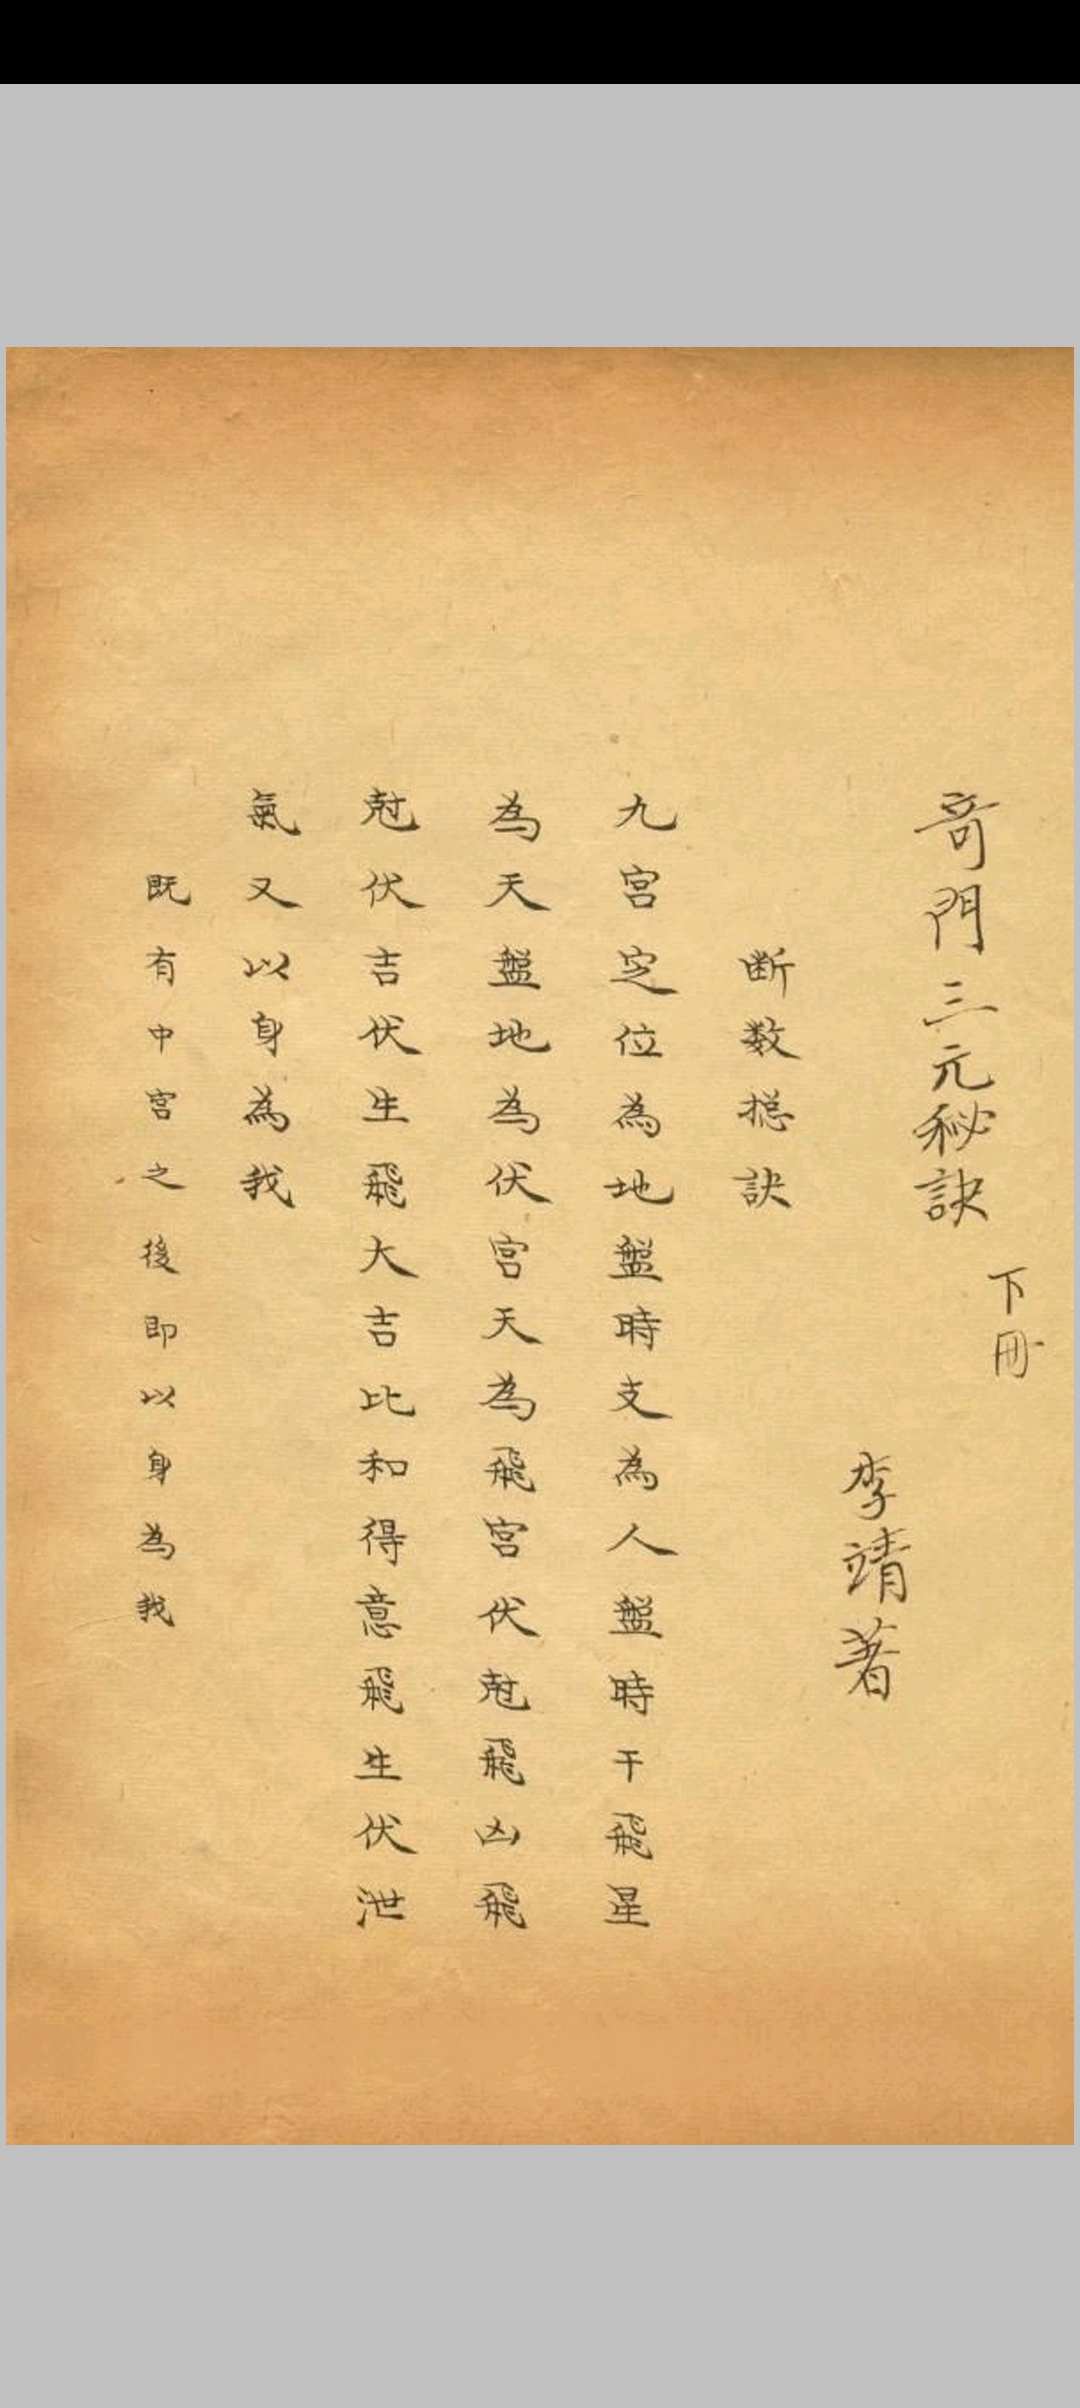 奇門三元秘訣
下冊
李靖著
断数捴訣
九宮定位為地盤時支為人盤時干飛星
為天盤地為伏宮天為飛宮伏尅飛凶飛
尅伏吉伏生飛大吉比和得意飛生伏泄
氣又以身為我
既有中宮之後即以身為我